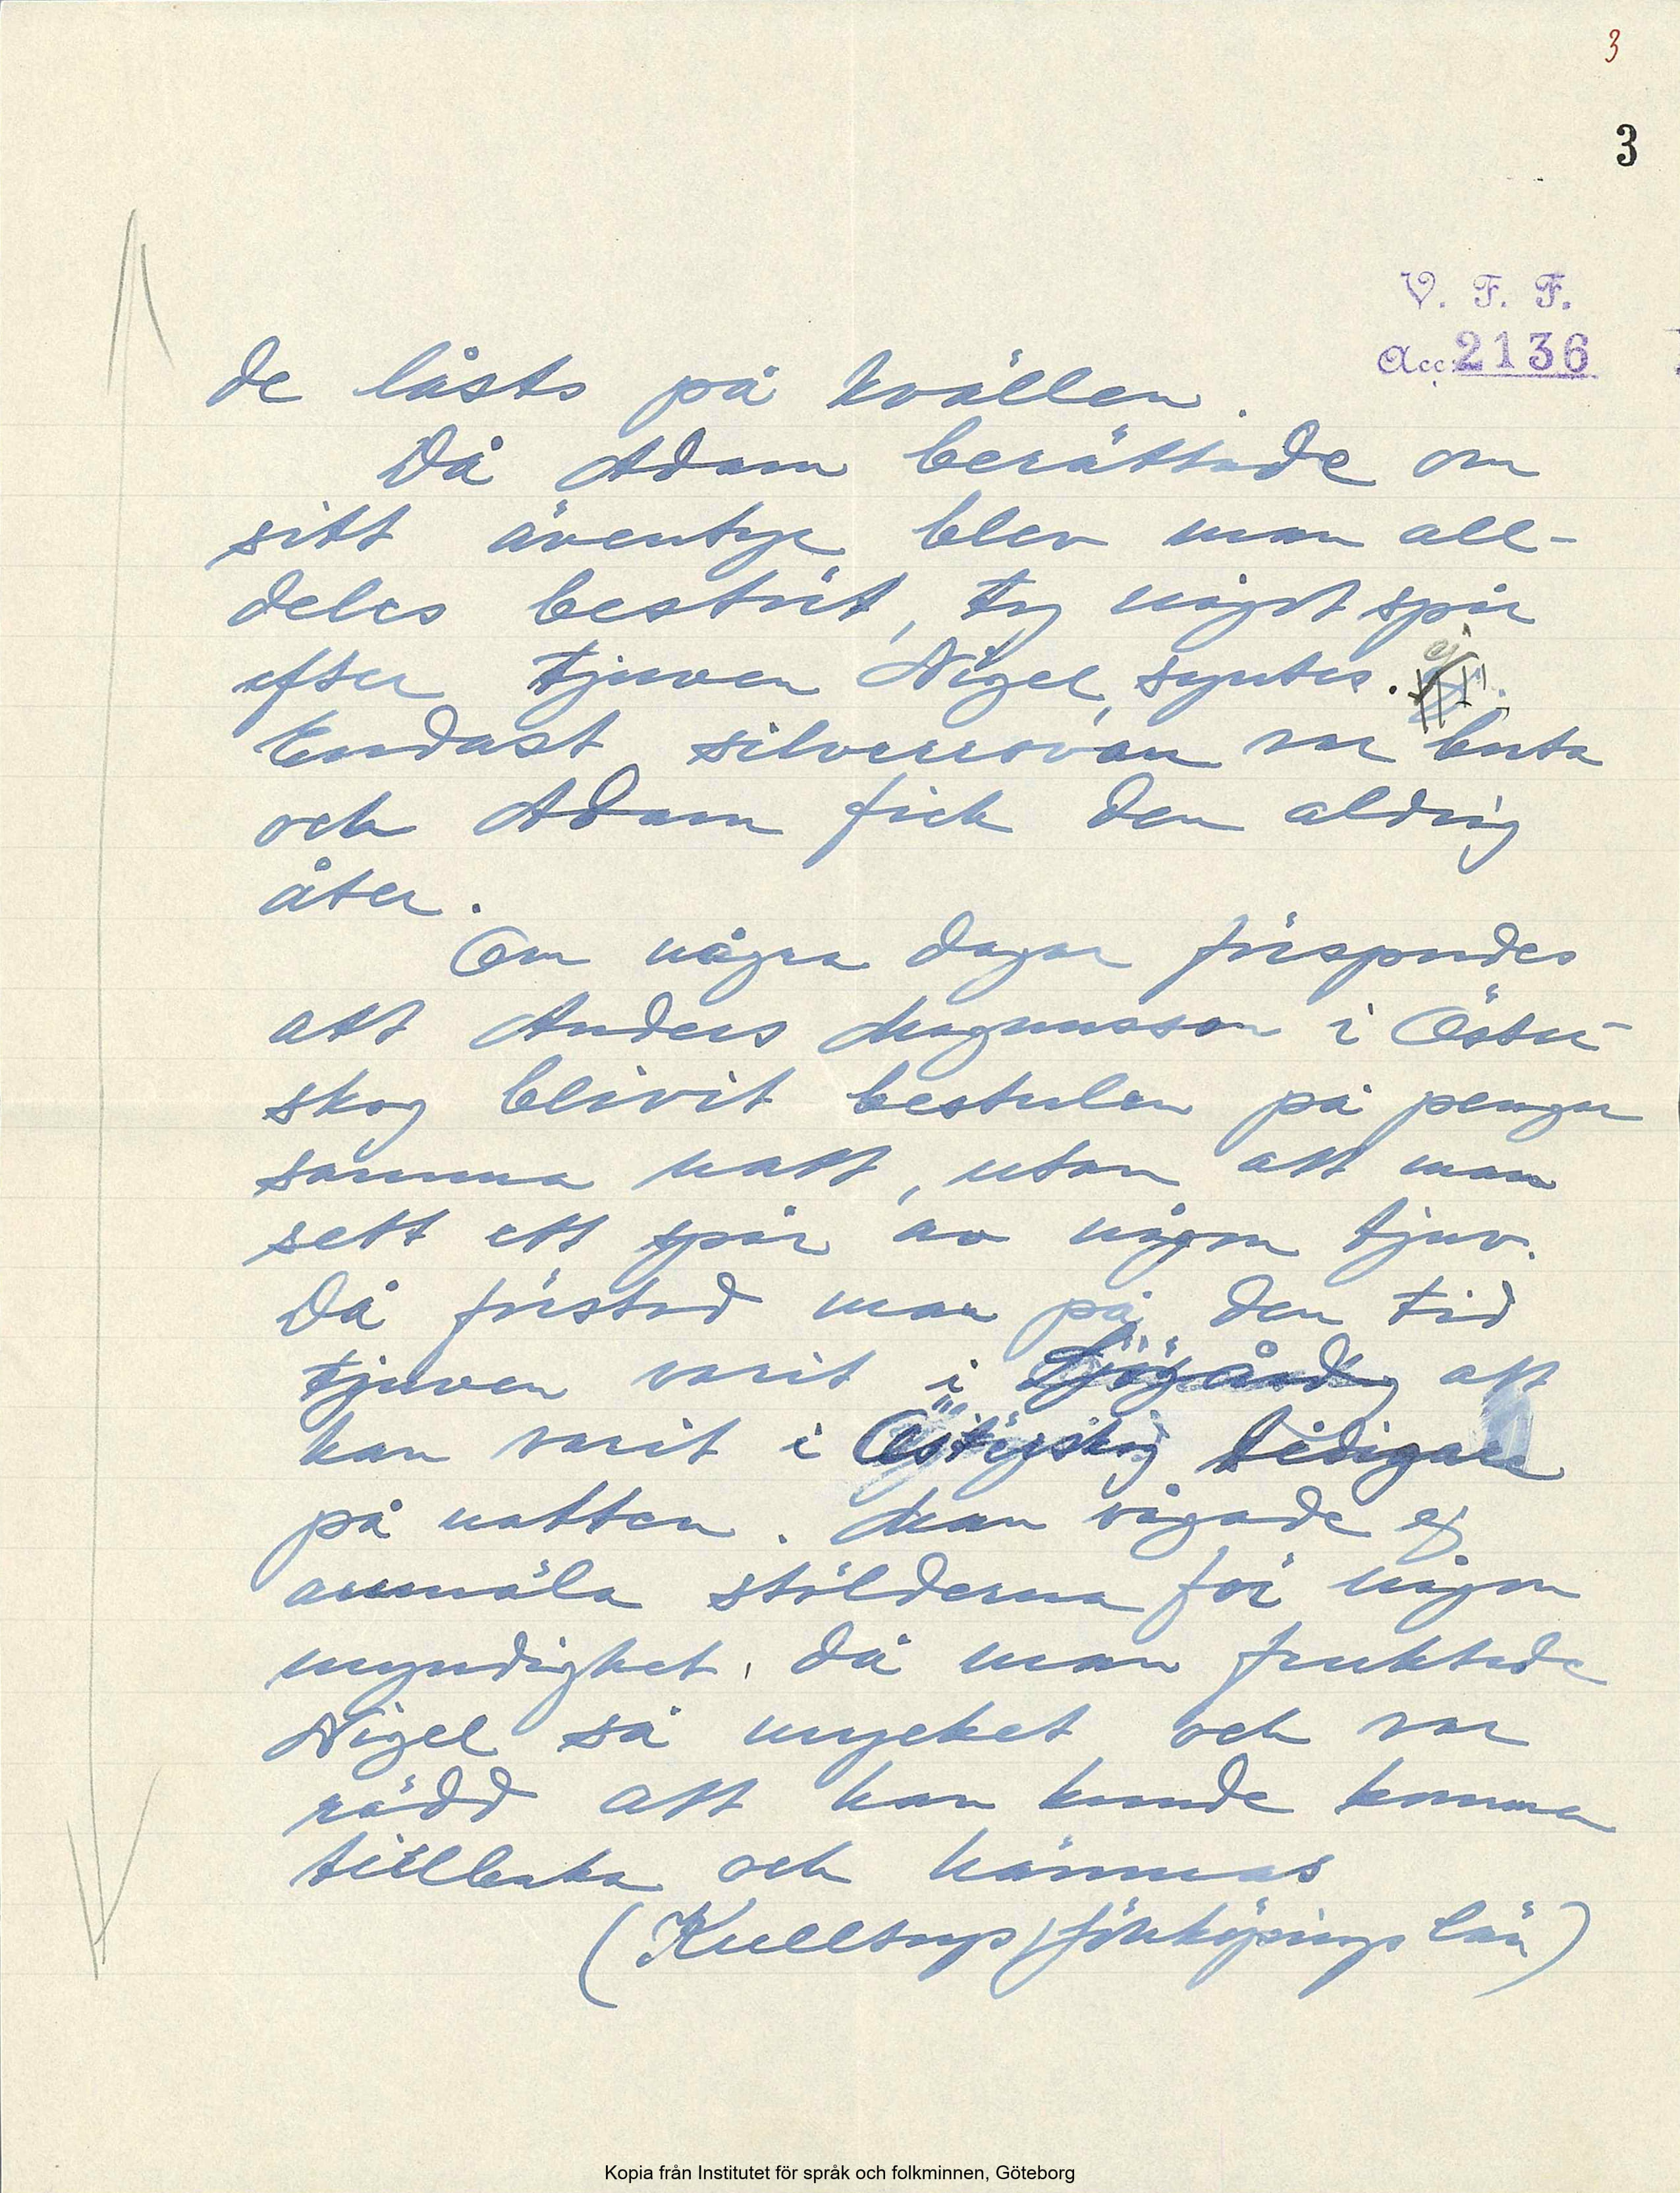 3
3
V. F. F.
Acc. 2136
de låsts på kvällen.
Då Adam berättade om
sitt äventyr blev man all-
deles bestört, ty något spår
efter tjuven Nigel, syntes. ej.
Endast silverrovan var borta
och Adam fick den aldrig
åter.
Om några dagar förspordes
att Anders Magnusson i Öster-
skog blivit bestulen på pengar
samma natt, utan att man
sett ett spår av någon tjuv.
Då förstod man på den tid
tjuven varit i att
han varit i Österskog tidigare
på natten. Man vågade ej
anmäla stölderna för någon
myndighet, då man fruktade
Nigel så mycket och var
rädd att han kunde komma
tillbaka och hämnas
(Kulltorp, Jönköpings län)
Kopia från Institutet för språk och folkminnen, Göteborg